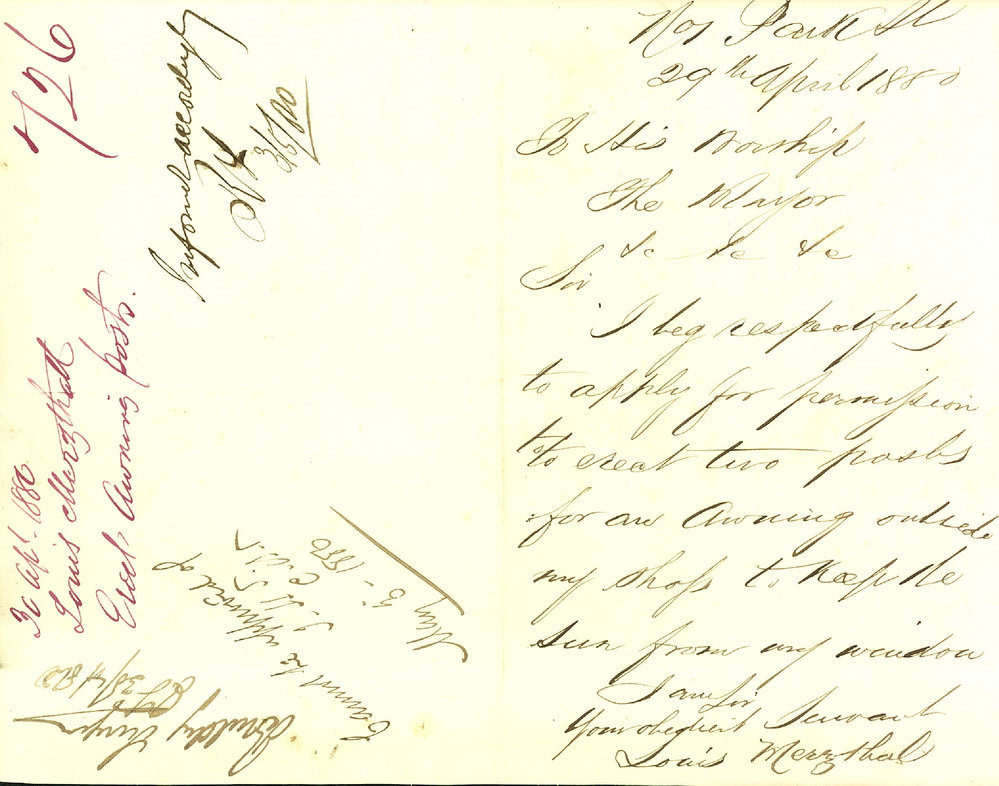 726
30 Apl. 1880
Louis Merzthall
Erect Awning posts.
Informed accordingly
3/5/80
Cannot be approved of
May 5 - 1880
30/4/80
No 7 Park St
29th April 1880
To His Worship
The Mayor
&c &c &c
Sir
I beg respectfully
to apply for permission
to to erect two posts
for an Awning outside
my shop to Keep the
sun from my window
I am Sir
Your obedient Servant
Louis Merzthal